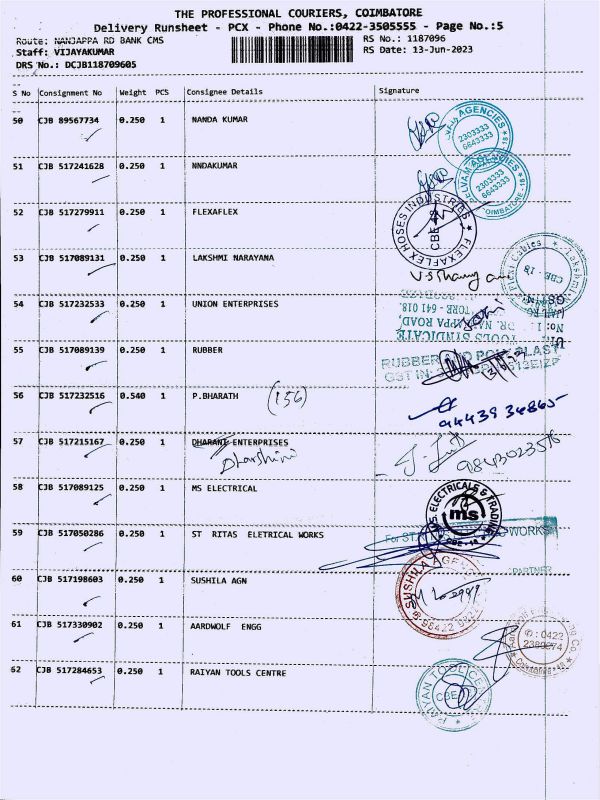 THE PROFESSIONAL COURIERS, COIMBATORE
Delivery Runsheet - PCX - Phone No.:0422-3505555 - Page No.:5
Route: NANJAPPA RD BANK CMS RS No.: 1187096
Staff: VIJAYAKUMAR RS Date: 13-Jun-2023
DRS No.: DCJB118709605
S No Consignment No Weight PCS Consignee Details Signature
50 CJB 89567734 0.250 1 NANDA KUMAR
AGENCIES
2303333
6643333
51 CJB 517241628 0.250 1 NNDAKUMAR
SELVAM AGENCIES
2303333
6643333
COIMBATORE-18
52 CJB 517279911 0.250 1 FLEXAFLEX
FLEXAFLEX HOSES INDUSTRIES
CBE-18
53 CJB 517089131 0.250 1 LAKSHMI NARAYANA
Lakshmi Flexi Cables
CBE - 18
54 CJB 517232533 0.250 1 UNION ENTERPRISES
TOOLS SYNDICATE
No: 1, DR. NANJAPPA ROAD,
TORE - 641 018.
55 CJB 517089139 0.250 1 RUBBER
RUBBER AND POLY PLAST
GST IN:
56 CJB 517232516 0.540 1 P.BHARATH (156)
94439 34865
57 CJB 517215167 0.250 1 DHARANI ENTERPRISES
Dharshini
9843023576
58 CJB 517089125 0.250 1 MS ELECTRICAL
MS. ELECTRICALS & TRADING
ms
CBE - 18
59 CJB 517050286 0.250 1 ST RITAS ELETRICAL WORKS
For ST WORKS
PARTNER
60 CJB 517198603 0.250 1 SUSHILA AGN
SUSHILA AGENC
61 CJB 517330902 0.250 1 AARDWOLF ENGG
0422
2380274
62 CJB 517284653 0.250 1 RAIYAN TOOLS CENTRE
RAIYAN TOOLS CENTRE
CBE